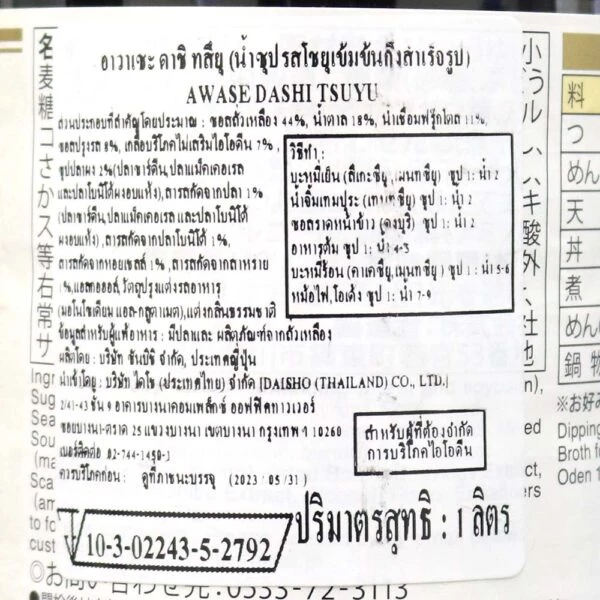 อาวาเซะ ดาชิ ทสึยุ (น้ำซุปรสโชยุเข้มข้นกึ่งสำเร็จรูป)
AWASE DASHI TSUYU
ส่วนประกอบที่สำคัญโดยประมาณ : ซอสถั่วเหลือง 44%, น้ำตาล 18%, น้ำเชื่อมฟรุ๊กโตส 11%,
ซอสปรุงรส 8%, เกลือบริโภคไม่เสริมไอโอดีน 7%,
ซุปปลาผง 2%(ปลาซาร์ดีน,ปลาแม็คเคอเรล
และปลาโบนิโต้ผงอบแห้ง),สารสกัดจากปลา 1%
(ปลาซาร์ดีน,ปลาแม็คเคอเรล และปลาโบนิโต้
ผงอบแห้ง),สารสกัดจากปลาโบนิโต้ 1%,
สารสกัดจากหอยเชลล์ 1%,สารสกัดจากสาหร่าย
1%,แอลกอฮอล์,วัตถุปรุงแต่งรสอาหาร
(มอโนโซเดียม แอล-กลูตาเมต),แต่งกลิ่นธรรมชาติ
วิธีทำ :
บะหมี่เย็น (สึเกะซึยุ ,เมนทซึยุ) ซุป 1: น้ำ 2
น้ำจิ้มเทมปุระ (เทนทซึยุ) ซุป 1: น้ำ 2
ซอสราดหน้าข้าว (ดงบุริ) ซุป 1: น้ำ 2
อาหารต้ม ซุป 1: น้ำ 4-3
บะหมี่ร้อน (คาเคซึยุ,เมนทซึยุ ) ซุป 1: น้ำ 5-6
หม้อไฟ,โอเด้ง ซุป 1: น้ำ 7-9
ข้อมูลสำหรับผู้แพ้อาหาร : มีปลาและ ผลิตภัณฑ์จากถั่วเหลือง
ผลิตโดย : บริษัท ซันบิชิ จำกัด, ประเทศญี่ปุ่น
นำเข้าโดย : บริษัท ไดโช (ประเทศไทย) จำกัด [DAISHO (THAILAND) CO., LTD.]
2/41-43 ชั้น 9 อาคารบางนาคอมเพล็กซ์ ออฟฟิศทาวเวอร์
ซอยบางนา-ตราด 25 แขวงบางนา เขตบางนา กรุงเทพฯ 10260
เบอร์ติดต่อ 02-744-1450-3
ควรบริโภคก่อน : ดูที่ภาชนะบรรจุ (2023/05/31)
สำหรับผู้ที่ต้องจำกัด
การบริโภคไอโอดีน
10-3-02243-5-2792
ปริมาตรสุทธิ : 1 ลิตร
料
つ
めん
天
丼
煮
めん
鍋 物
※お好み
Dipping
Broth fo
Oden 1
◎お問い合わせ先:0533-72-3113